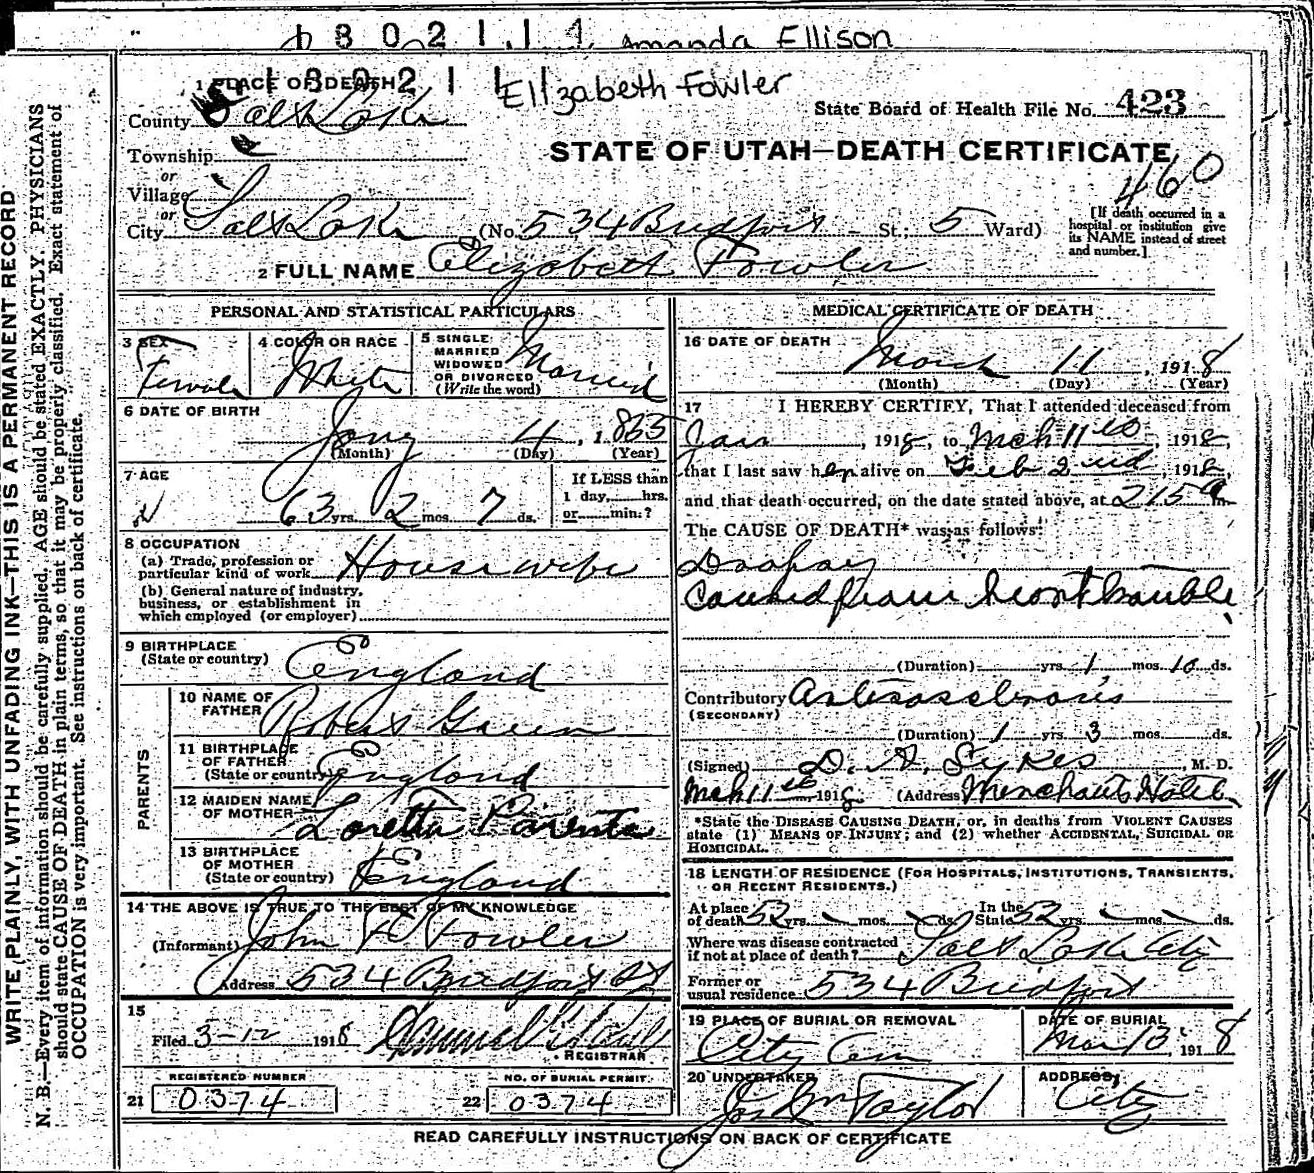 1 8 0 2 1 1 4 Amanda Ellison
1 8 0 2 1 1 Elizabeth Fowler
1 PLACE OF DEATH
County Salt Lake
State Board of Health File No. 423
Township
or
Village
or
STATE OF UTAH—DEATH CERTIFICATE
460
City Salt Lake (No. 534 St.; 5 Ward)
[If death occurred in a hospital or institution give its NAME instead of street and number.]
2 FULL NAME Elizabeth Fowler
PERSONAL AND STATISTICAL PARTICULARS
3 SEX Female
4 COLOR OR RACE White
5 SINGLE MARRIED WIDOWED OR DIVORCED (Write the word) Married
6 DATE OF BIRTH
4, 1865
(Month) (Day) (Year)
7 AGE
63 yrs. 2 mos. 7 ds.
If LESS than 1 day, hrs. or min.?
8 OCCUPATION
(a) Trade, profession or particular kind of work Housewife
(b) General nature of industry, business, or establishment in which employed (or employer)
9 BIRTHPLACE
(State or country) England
PARENTS
10 NAME OF FATHER Robert Green
11 BIRTHPLACE OF FATHER (State or country) England
12 MAIDEN NAME OF MOTHER Loretta
13 BIRTHPLACE OF MOTHER (State or country) England
14 THE ABOVE IS TRUE TO THE BEST OF MY KNOWLEDGE
(Informant) John F Fowler
Address 534 St
15
Filed 3-12 1918
REGISTRAR
REGISTERED NUMBER
21 0374
NO. OF BURIAL PERMIT
22 0374
MEDICAL CERTIFICATE OF DEATH
16 DATE OF DEATH
March 11, 1918
(Month) (Day) (Year)
17 I HEREBY CERTIFY, That I attended deceased from
Jan, 1918, to Mch 11th, 1918
that I last saw her alive on Feb 2nd, 1918
and that death occurred, on the date stated above, at 215 a m.
The CAUSE OF DEATH* was as follows:
Dropsy
Caused from heart trouble
(Duration) yrs. 1 mos. 10 ds.
Contributory Arteriosclerosis
(SECONDARY)
(Duration) 1 yrs. 3 mos. ds.
(Signed) D. A. Sykes, M. D.
Mch 11th, 1918 (Address) Merchants Hotel
*State the DISEASE CAUSING DEATH, or, in deaths from VIOLENT CAUSES state (1) MEANS OF INJURY; and (2) whether ACCIDENTAL, SUICIDAL OR HOMICIDAL.
18 LENGTH OF RESIDENCE (FOR HOSPITALS, INSTITUTIONS, TRANSIENTS, OR RECENT RESIDENTS.)
At place of death 52 yrs. mos. ds. In the State 52 yrs. mos. ds.
Where was disease contracted if not at place of death? Salt Lake City
Former or usual residence 534
19 PLACE OF BURIAL OR REMOVAL City Cem
DATE OF BURIAL Mar 13, 1918
20 UNDERTAKER Jos Wm Taylor
ADDRESS City
READ CAREFULLY INSTRUCTIONS ON BACK OF CERTIFICATE
WRITE PLAINLY, WITH UNFADING INK—THIS IS A PERMANENT RECORD
N. B.—Every item of information should be carefully supplied. AGE should be stated EXACTLY. PHYSICIANS
should state CAUSE OF DEATH in plain terms, so that it may be properly classified. Exact statement of
OCCUPATION is very important. See instructions on back of certificate.